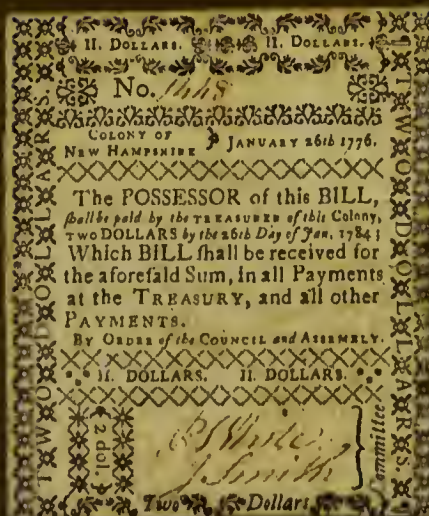 II. DOLLARS. II. DOLLARS.
No. 1448
COLONY OF
NEW HAMPSHIRE } JANUARY 26th 1776.
The POSSESSOR of this BILL,
ſhall be paid by the TREASURER of this Colony,
TWO DOLLARS by the 26th Day of Jan. 1784;
Which BILL ſhall be received for
the aforeſaid Sum, in all Payments
at the TREASURY, and all other
PAYMENTS.
BY ORDER of the COUNCIL and ASSEMBLY.
II. DOLLARS. II. DOLLARS.
{ 2 dol. }
J Smith
} Committee
Two Dollars
TWO DOLLARS.
TWO DOLLARS.